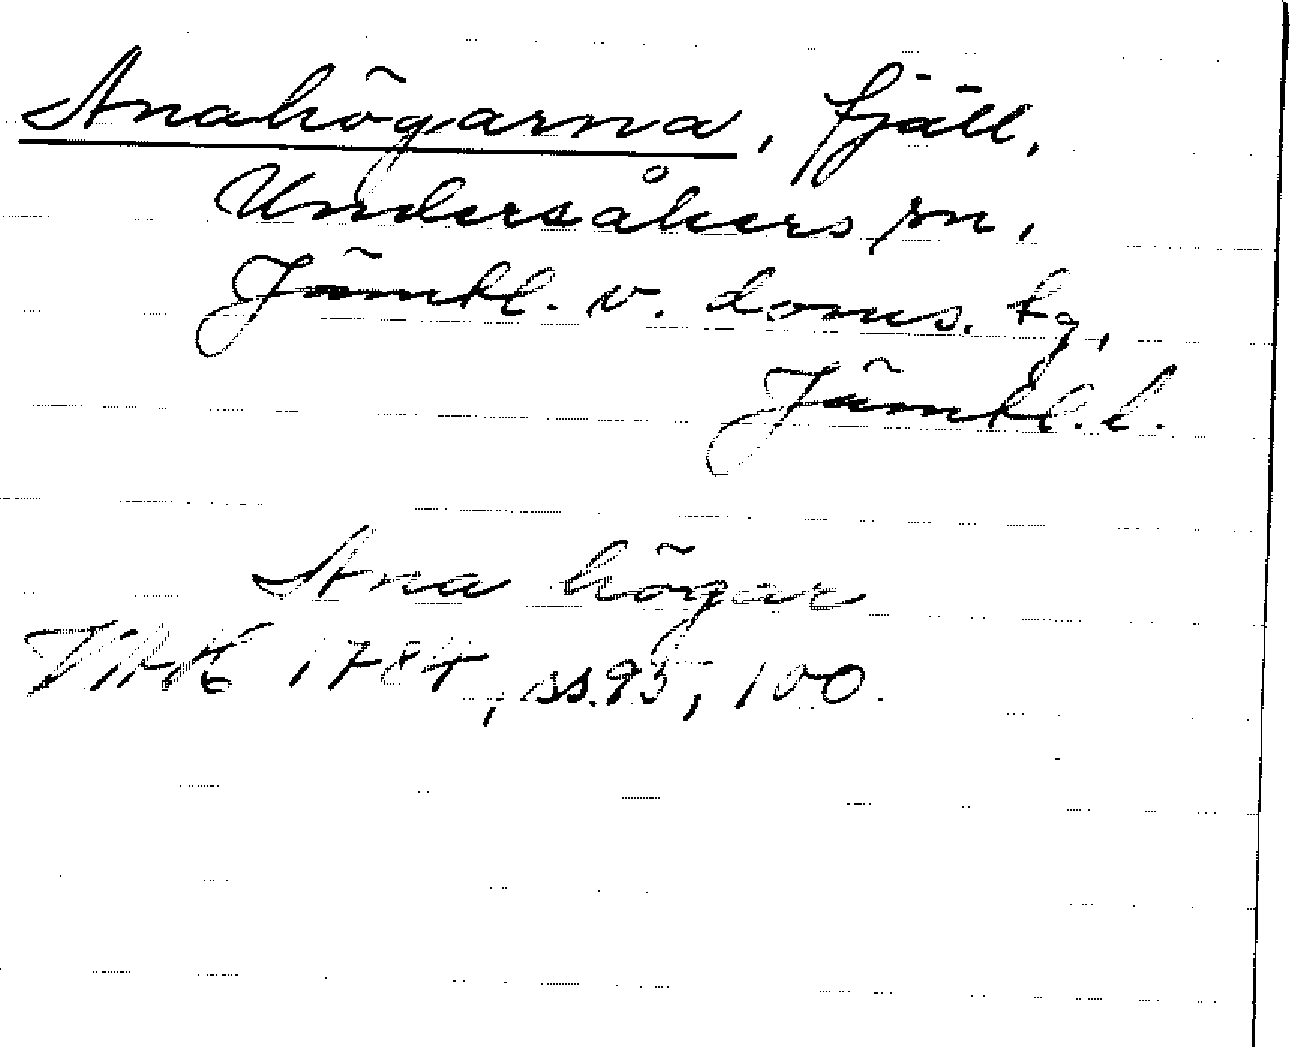 Anahögarna, fjäll,
Undersåkers sn,
Jämtl. v. doms. tg,
Jämtl. l.
Ana högar
1784, ss. 95, 100.